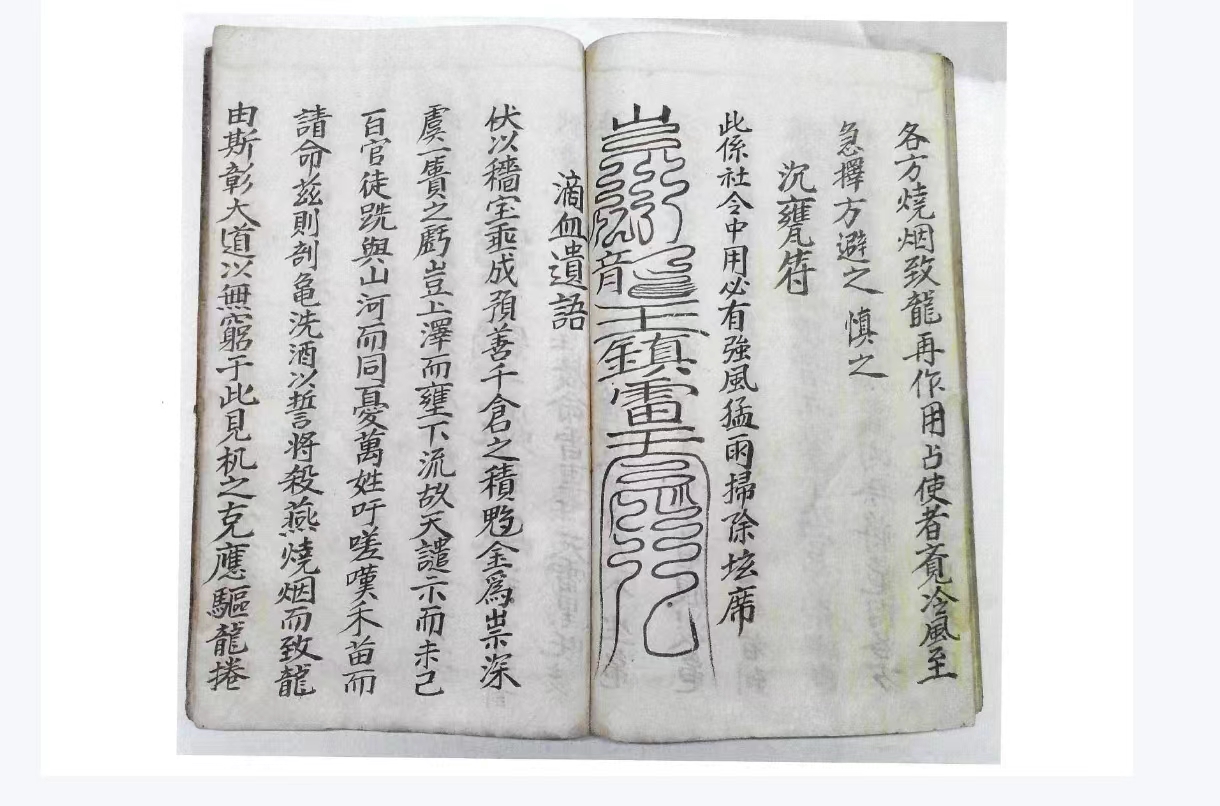 各方燒烟致龍再作用占使者竟冷風至
急擇方避之 慎之
沉甕符
此係社令中用必有強風猛雨掃除坛席
龍王鎮雷
滴血遺語
伏以穡宝垂成預善千倉之積魃金為祟深
虞一簣之虧豈上澤而壅下流故天譴示而未已
百官徒跣與山河而同憂萬姓吁嗟嘆禾苗而
請命茲則剖龜洗酒以誓將殺燕燒烟而致龍
由斯彰大道以無窮于此見机之克應驅龍捲